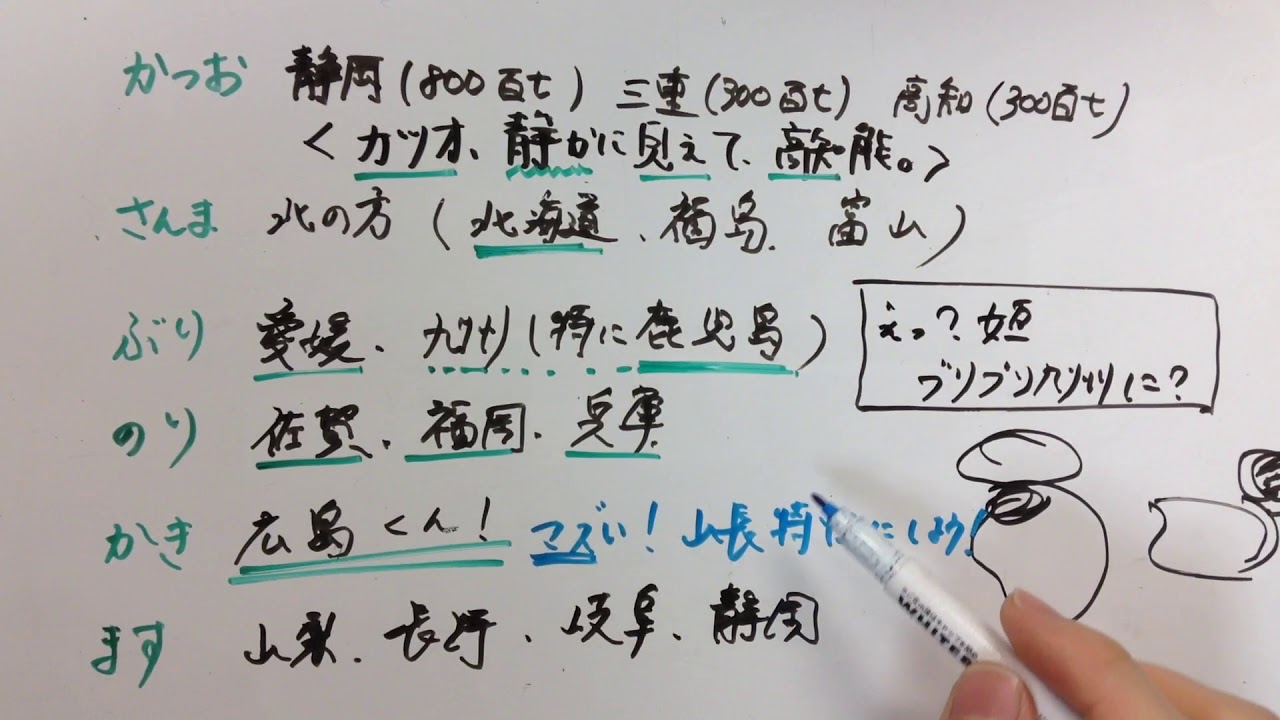 かつお 静岡(800百t) 三重(300百t) 高知(300百t)
<カツオ、静かに見えて、高知能。>
さんま 北の方(北海道、福島、富山)
ぶり 愛媛、九州(特に鹿児島)
えっ?姫
ブリブリ九州に?
のり 佐賀、福岡、兵庫
かき 広島くん! マズい!山長特 にしよう!
ます 山梨、長野、岐阜、静岡
WHITEB